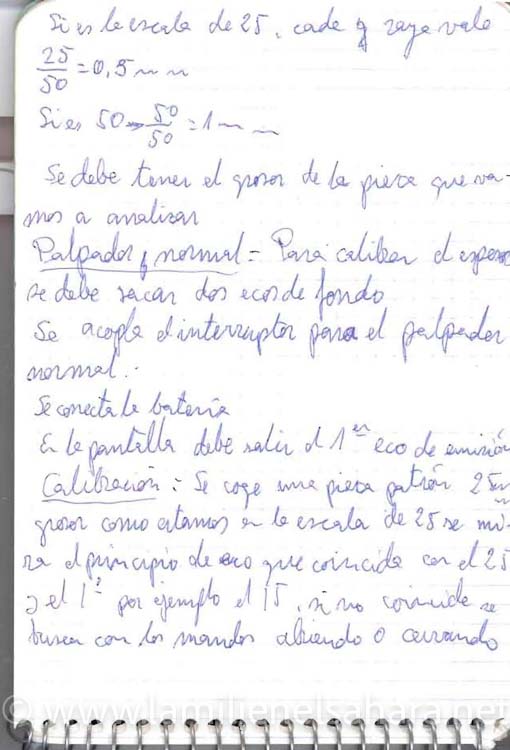 Si es la escala de 25, cada raya vale
25/50 = 0,5 m m
Si es 50 → 50/50 = 1 m m
Se debe tener el grosor de la pieza que va-
mos a analizar
Palpador normal = Para calibrar el espesor
se debe sacar dos ecos de fondo
Se acopla el interruptor para el palpador
normal.
Se conecta la batería
En la pantalla debe salir el 1er eco de emisión
Calibración: Se coge una pieza patrón 25 mm
grosor como estamos en la escala de 25 se mi-
ra el principio de eco que coincida con el 25
y el 1º por ejemplo el 15, si no coincide se
busca con los mandos abriendo o cerrando
© www.lamilienelsahara.net